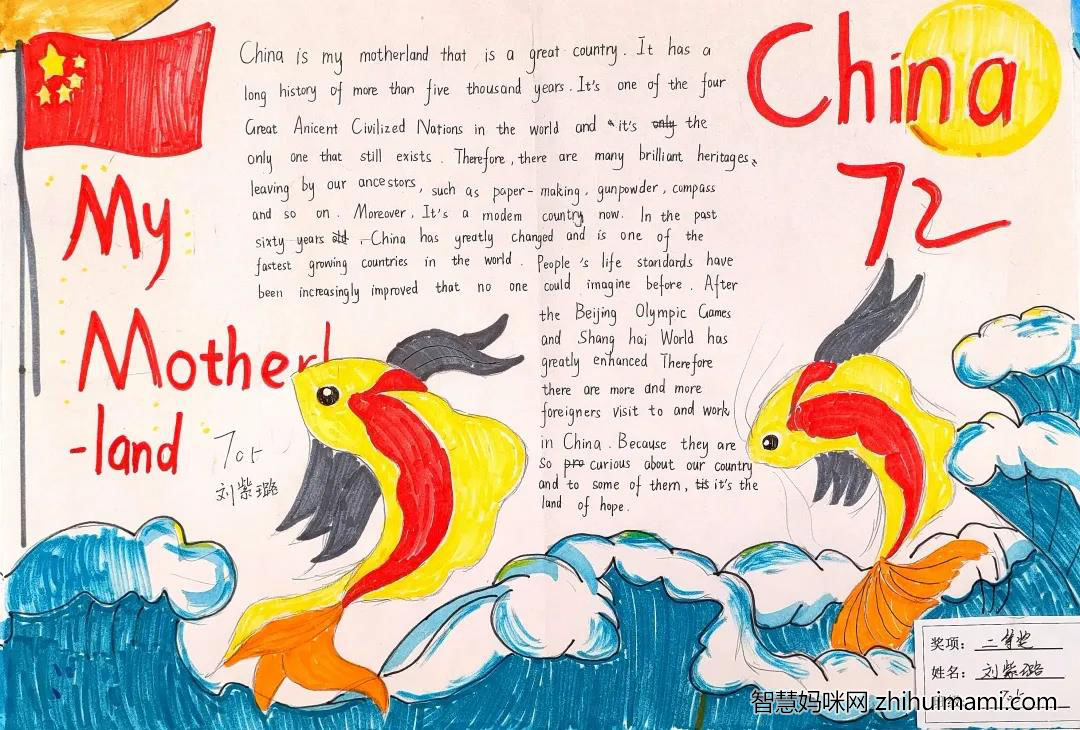 My
Mother
-land
705
刘紫璐
China is my motherland that is a great country. It has a
long history of more than five thousand years. It's one of the four
Great Anicent Civilized Nations in the world and it's only the
only one that still exists. Therefore, there are many brilliant heritages,
leaving by our ancestors, such as paper-making, gunpowder, compass
and so on. Moreover, It's a modem country now. In the past
sixty years old, China has greatly changed and is one of the
fastest growing countries in the world. People's life standards have
been increasingly improved that no one could imagine before. After
the Beijing Olympic Games
and Shang hai World has
greatly enhanced Therefore
there are more and more
foreigners visit to and work
in China. Because they are
so pro curious about our country
and to some of them, tis it's the
land of hope.
China
72
奖项: 二等奖
姓名: 刘紫璐
705
智慧妈咪网 zhihuimami.com